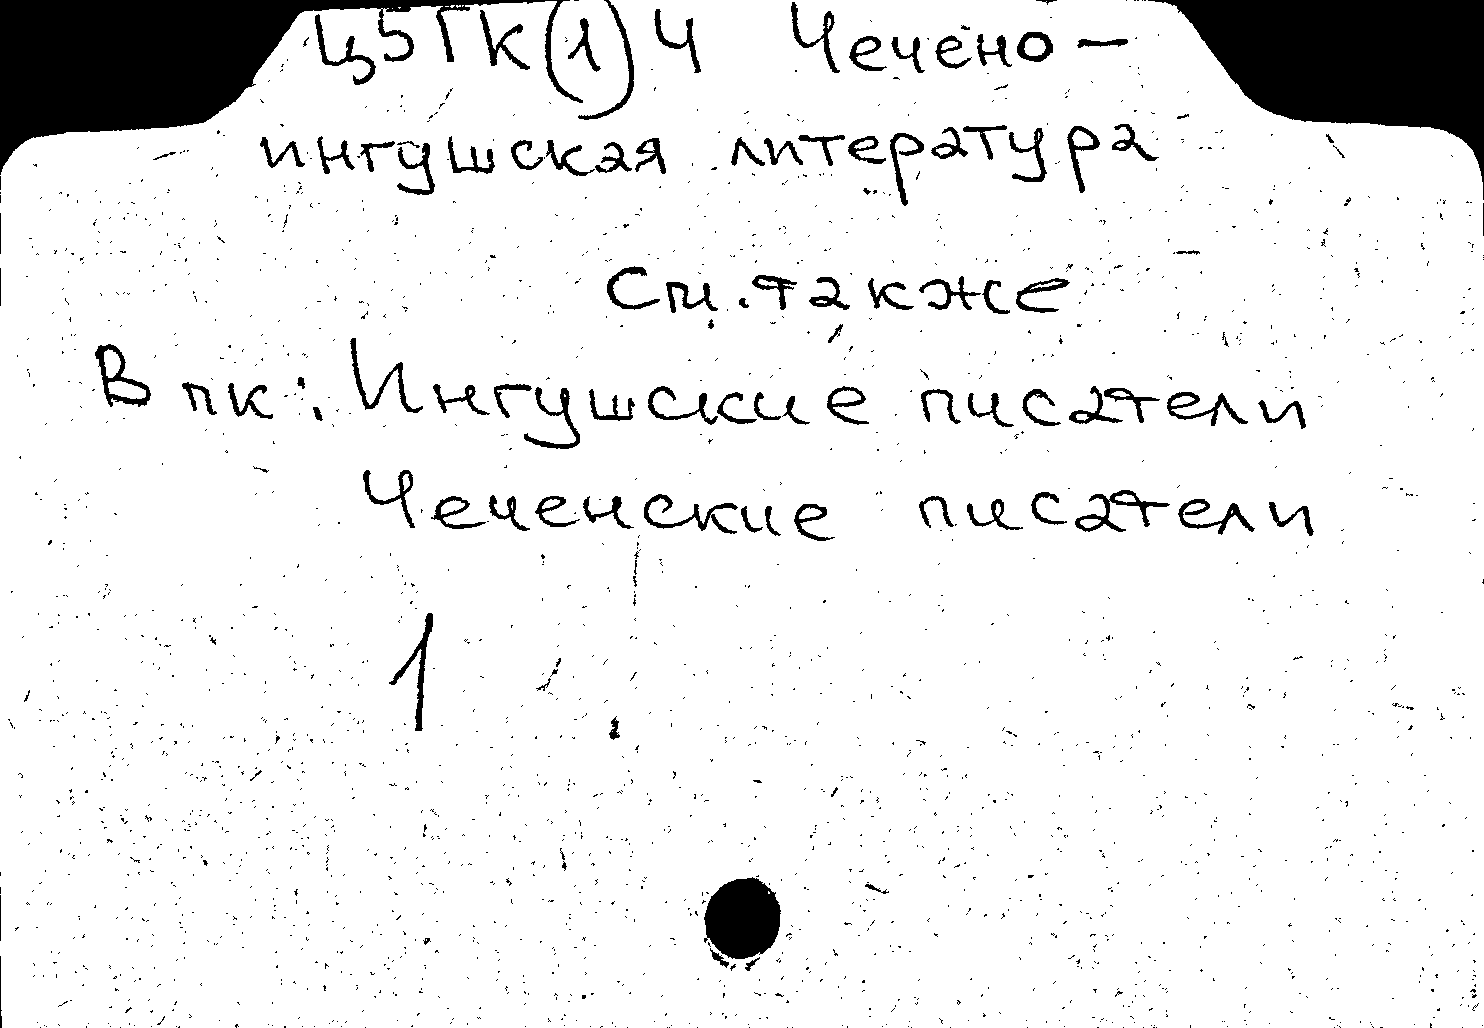 Ц5ГК(1)Ч Чечено-
ингушская литература
См. также
В пк: Ингушские писатели
Чеченские писатели
1